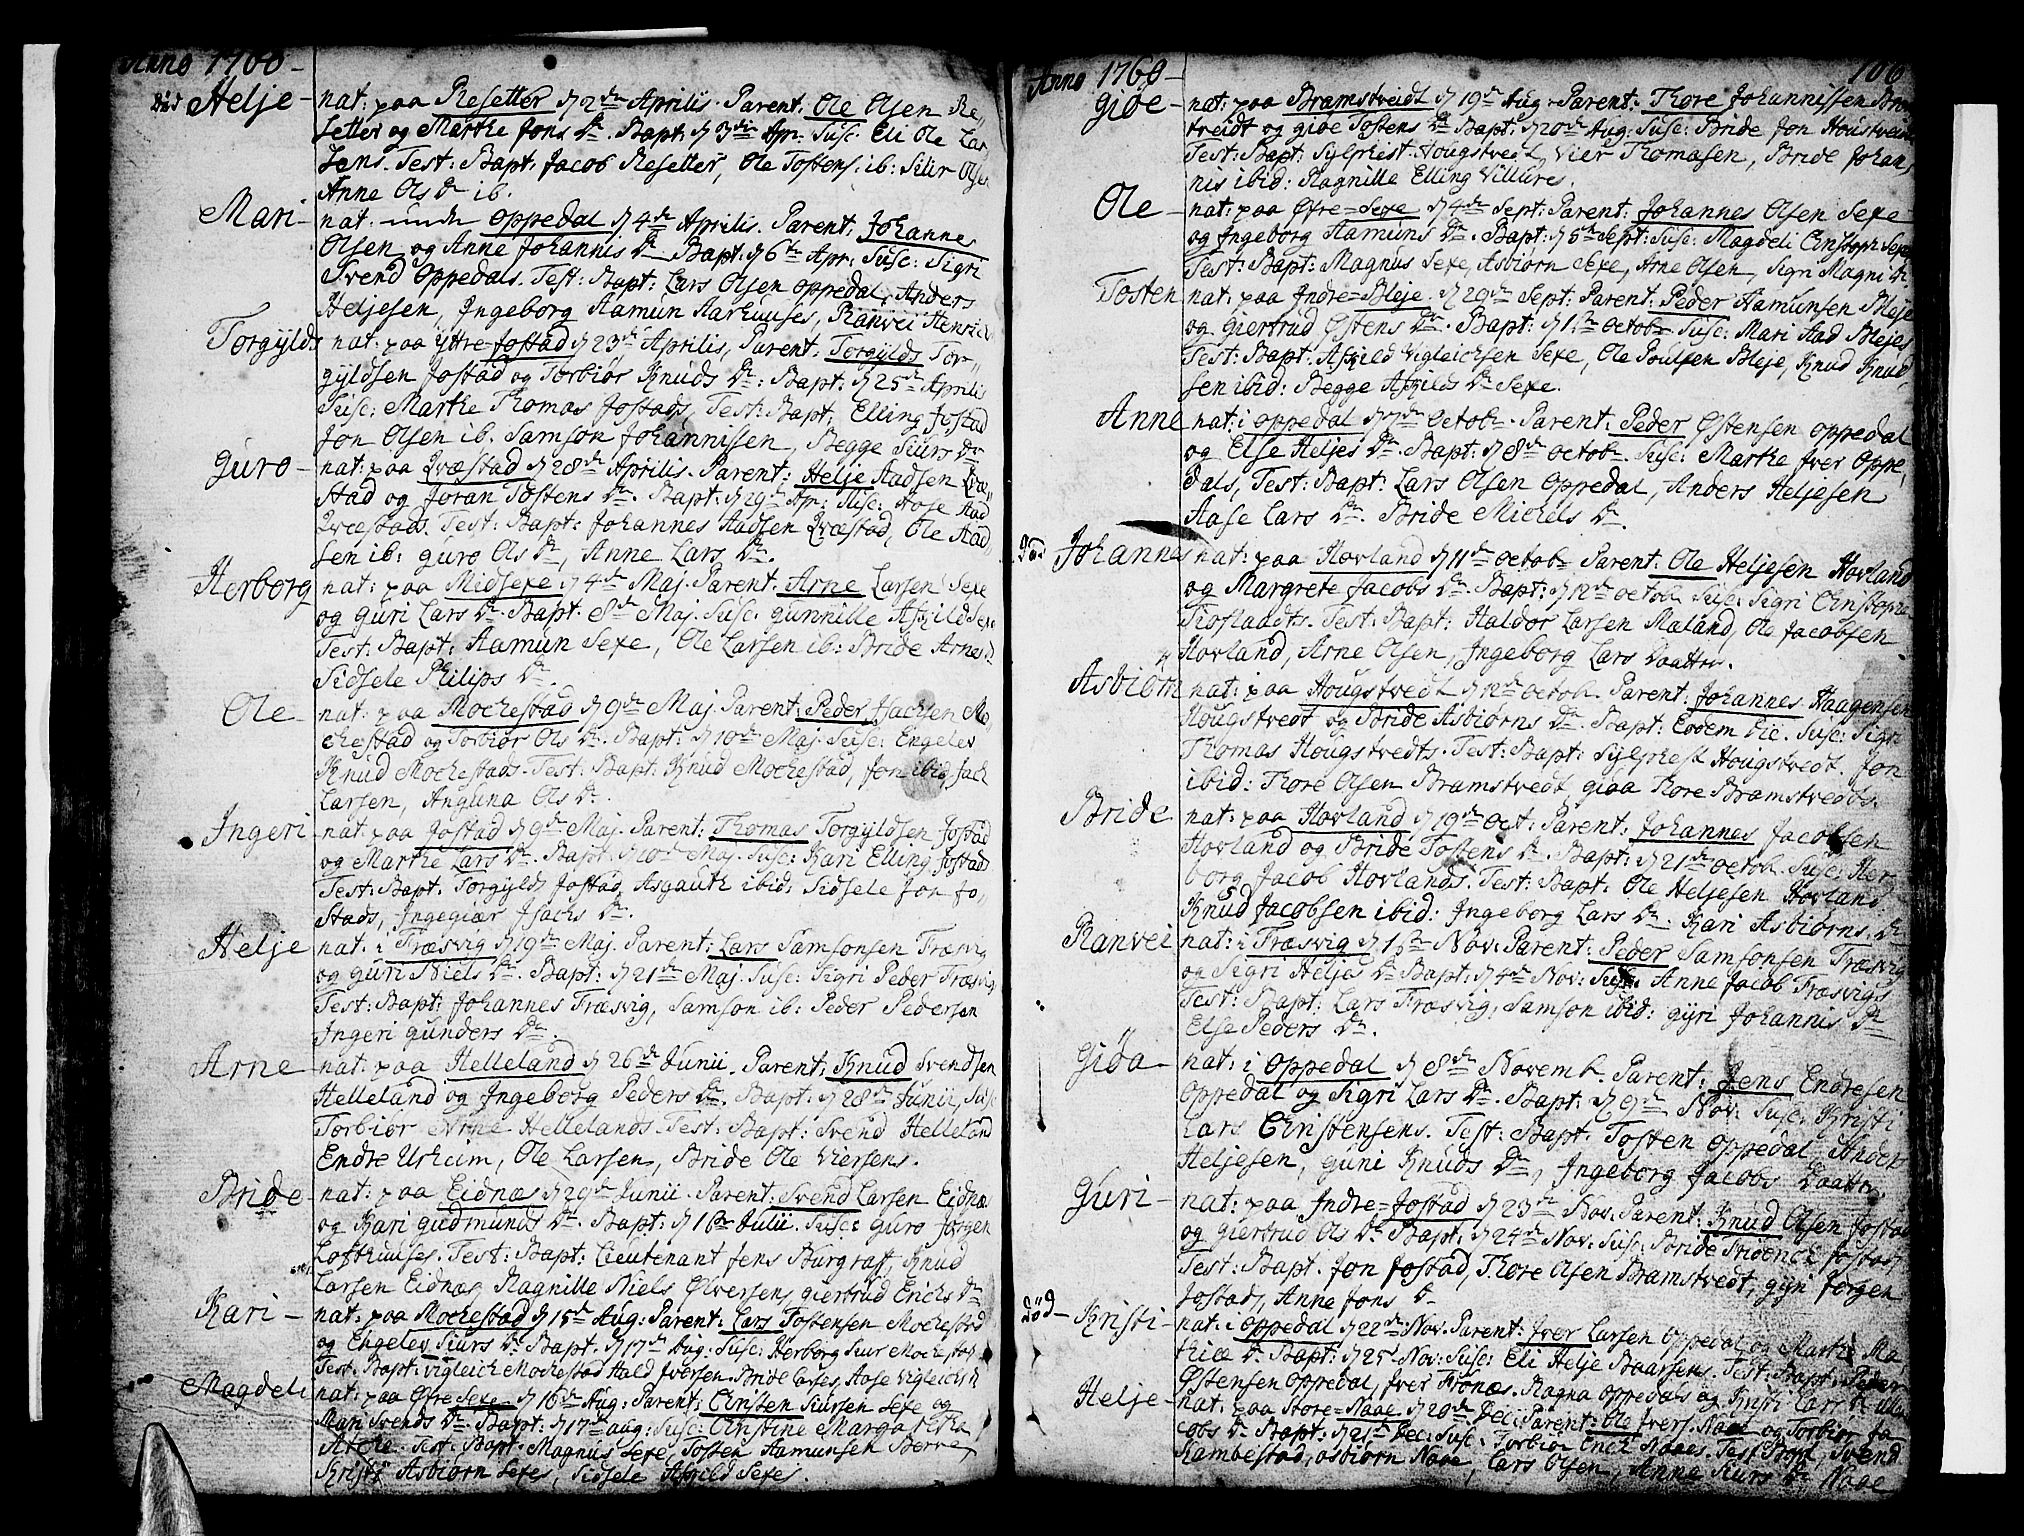 Anno 1760 -
död Helje - nat: paa Resetter d 2dn Aprilis. Parent. Ole Olsen Re,,
setter og Marthe Jons Dr. Bapt: d 3die Apr. Susc: Eli Ole Lar,,
sens. Test: Bapt: Jacob Resetter, Ole Tostens. ib: Silir Olsen
Anne Ols Dr ib.
Mari - nat. under Oppedal d 4de Aprilis. Parent: Johannes
Olsen og Anne Johannis Dr Bapt: d 6te Apr: Susc: Sigri
Svend Oppedals. Test: Bapt: Lars Olsen Oppedal, Anders
Heljesen, Ingeborg Aamun Aarhuuses, Ranvei Henrich
Torgylds nat: paa Yttre-Jostad d 23de Aprilis, Parent: Torgylds Tor,,
gyldsen Jostad og Torbiør Knuds Dr: Bapt: d 25de Aprilis
Susc: Marthe Thomas Jostads, Test: Bapt: Elling Jostad
Jon Olsen ib. Samson Johannissen, Begge Siurs Dr
Guro - nat: paa Qvæstad d 28de Aprilis. Parent: Helje Aadsen Qvæ,,
stad og Joran Tostens Dr. Bapt: d 29de Apr: Susc: Aase Aad
Qvæstads. Test: Bapt: Johannes Aadsen Qvæstad, Ole Aad
sen ib: Guro Ols Dr, Anne Lars Dr.
Herborg nat: paa Midsexe d 4de Maj. Parent. Arne Larsen Sexe
og Guri Lars Dr. Bapt. 8de Maj. Susc: Gunnille Askild Sexe
Test: Bapt: Aamun Sexe, Ole Larsen ib: Bride Arnes Dr
Sidsele Philips Dr.
Ole - nat: paa Mochestad d 9de Maj. Parent: Peder Isachsen Mo,,
chestad og Torbiør Ols Dr. Bapt: d 10de Maj. Susc: Engelev
Knud Mochestads. Test: Bapt: Knud Mochestad, Jon ibid, Jach
Larsen, Anguna Ols Dr.
Ingeri - nat: paa Jostad d 9de Maj. Parent: Thomas Torgyldsen Jostad
og Marthe Lars Dr. Bapt: d 10de Maj. Susc: Kari Elling Jostad
Test: Bapt. Torgylds Jostad, Asgauth ibid: Sidsele Jon Jo,,
stads, Ingegiær Isachs Dr.
Helje nat. i Træsvig d 19de Maj. Parent: Lars Samsonsen Træsvig
og Guri Niels Dr. Bapt: d 21de Maj. Susc: Sigri Peder Træsvig
Test: Bapt: Johannes Træsvig, Samson ib: Peder Pedersen
Ingeri Gunders Dr.
Arne - nat: paa Helleland d 26de Junii. Parent: Knud Svendsen
Helleland og Ingeborg Peders Dr. Bapt: d 28de Junii, Susc
Torbiør Arne Hellelands. Test: Bapt: Svend Helleland
Endre Urheim, Ole Larsen, Bride Ole Viersens.
Bride - nat: paa Eidnæs d 29de Junii. Parent: Svend Larsen Eidnæ
og Kari Gudmunds Dr. Bapt: d 16de Julii. Susc: Guro Jørgen
Lofthuuses. Test: Bapt: Lieutenant Jens Burgraff, Knud
Larsen Eidnæs, Ragnille Niels Ølversens, Giertrud Erichs Dr
Kari - nat: paa Mochestad d 15de Aug: Parent: Lars Tostensen Mochestad
og Engelev Siurs Dr. Bapt. d 17de Aug: Susc: Herborg Siur Mochestads
Test: Bapt: Vigleich Mochestad, Hald Iversen. Bride Larses, Aase Vigleichs
Magdeli nat: paa Øfre Sexe d 16de Aug: Parent: Christen Siursen Sexe og
Mari Svends Dr. Bapt: d 17de Aug: Susc: Christine Margaretha
Test: Bapt: Magnus Sexe, Tosten Aamunsen Berve,
Kristi Asbiørn Sexes, Sidsele Askild Sexes.
Anno 1760 - 106
Giøe - nat: paa Bramstveidt d 19de Aug. Parent: Thore Johannissen Bram
tveidt og Giøe Tostens Dr Bapt: d 20de Aug: Susc: Bride Jon Houstveits
Test: Bapt: Sylphest Hougstvedt, Vier Thomasen, Bride Johan,
nis ibid: Ragnille Elling Villures.
Ole - nat: paa Øfre=Sexe d 4de Sept: Parent: Johannes Olsen Sexe -
og Ingeborg Aamuns Dr. Bapt: d 5te Sept: Susc: Magdeli Christoph Sexe
Test: Bapt: Magnus Sexe, Asbiørn Sexe, Arne Olsen, Sigri Magni Dr
Tosten nat: paa Indre=Bleje. d 29de Sept: Parent: Peder Aamunsen Bleje
og Giertrud Østens Dr. Bapt: d 1ste Octobr Susc: Mari Aad Blejes
Test: Bapt. Askild Vigleichsen Sexe, Ole Poulsen Bleje, Knud Knud,
sen ibid: Begge Askilds Dr Sexe.
Anne nat: i Oppedal d 7de Octobr - Parent: Peder Østensen Oppedal
og Else Heljes Dr. Bapt: d 8de Octobr. Susc: Marthe Iver Oppe,
dals, Test: Bapt: Lars Olsen Oppedal, Anders Heljesen
Aase Lars Dr. Bride Michels Dr.
död Johannes nat: paa Hovland d 11de Octob. Parent: Ole Heljesen Hovland
og Margrete Jacobs Dr. Bapt: d 12te Octob. Susc: Sigri Christopher
Test: Bapt: Haldor Larsen Mæland, Ole Jacobsen
Hovland, Arne Olsen, Ingeborg Lars Daatter.
Asbiørn nat: paa Hougstvedt d 12te Octob. Parent: Johannes Haagensen
Hougstvedt og Bride Asbiørns Dr. Bapt: Eodem Die. Susc: Sigri
Thomas Hougstvedts. Test: Bapt: Sylphest Hougstvedt. Jon
ibid: Thore Olsen Bramstvedt, Giøa Thore Bramstvedts.
Bride nat: paa Hovland d 19de Oct: Parent: Johannes Jacobsen
Hovland og Bride Tostens Dr. Bapt: d 21de Octob. Susc: Her,
borg Jacob Hovlands. Test: Bapt: Ole Heljesen Hovland
Knud Jacobsen ibid: Ingeborg Lars Dr. Kari Asbiørns Dr
Ranvei nat: i Træsvig d 1ste Nov: Parent: Peder Samsonsen Træsvig
og Sigri Heljes Dr Bapt: d 4de Nov: Susc: Anne Jacob Træsvigs
Test: Bapt: Lars Træsvig, Samson ibid: Gyri Johannis Dr
Else Peders Dr.
Giøa - nat: i Oppedal d 8de Novemb. Parent: Jens Endresen
Oppedal og Sigri Lars Dr. Bapt: d 9de Nov: Susc: Kristi
Lars Christensens. Test: Bapt. Tosten Oppedal, Anders
Heljesen, Guni Knuds Dr, Ingeborg Jacobs Daatter
Guri - nat: paa Indre=Jostad d 23de Nov. Parent: Knud Olsen Jostad
og Giertrud Ols Dr Bapt: d 24de Nov: Susc: Bride Jostad
Test: Bapt. Jon Jostad, Thore Olsen Bramstvedt, Gyri Jørgen
Jostads, Anne Jons Dr
död - Kristi - nat: i Oppedal d 22de Nov. Parent: Iver Larsen Oppedal og Marthe Ma
thiæ Dr Bapt: d 25de Nov: Susc: Eli Helje Baarsens. Test: Bapt: Peder
Østensen Oppedal, Iver Frønæs. Ragna Oppedals og Kristi Lars Dr
Helje - nat: paa Store=Naae d 20de Dec: Parent: Ole Ivers. Naae og Torbiør Ja
cobs Dr. Bapt: d 21de Dec: Susc: Torbiør Erich Naaes. Test: Bapt: Svend
Kambestad, Asbiørn Naae, Lars Olsen, Anna Siurs Dr Naae